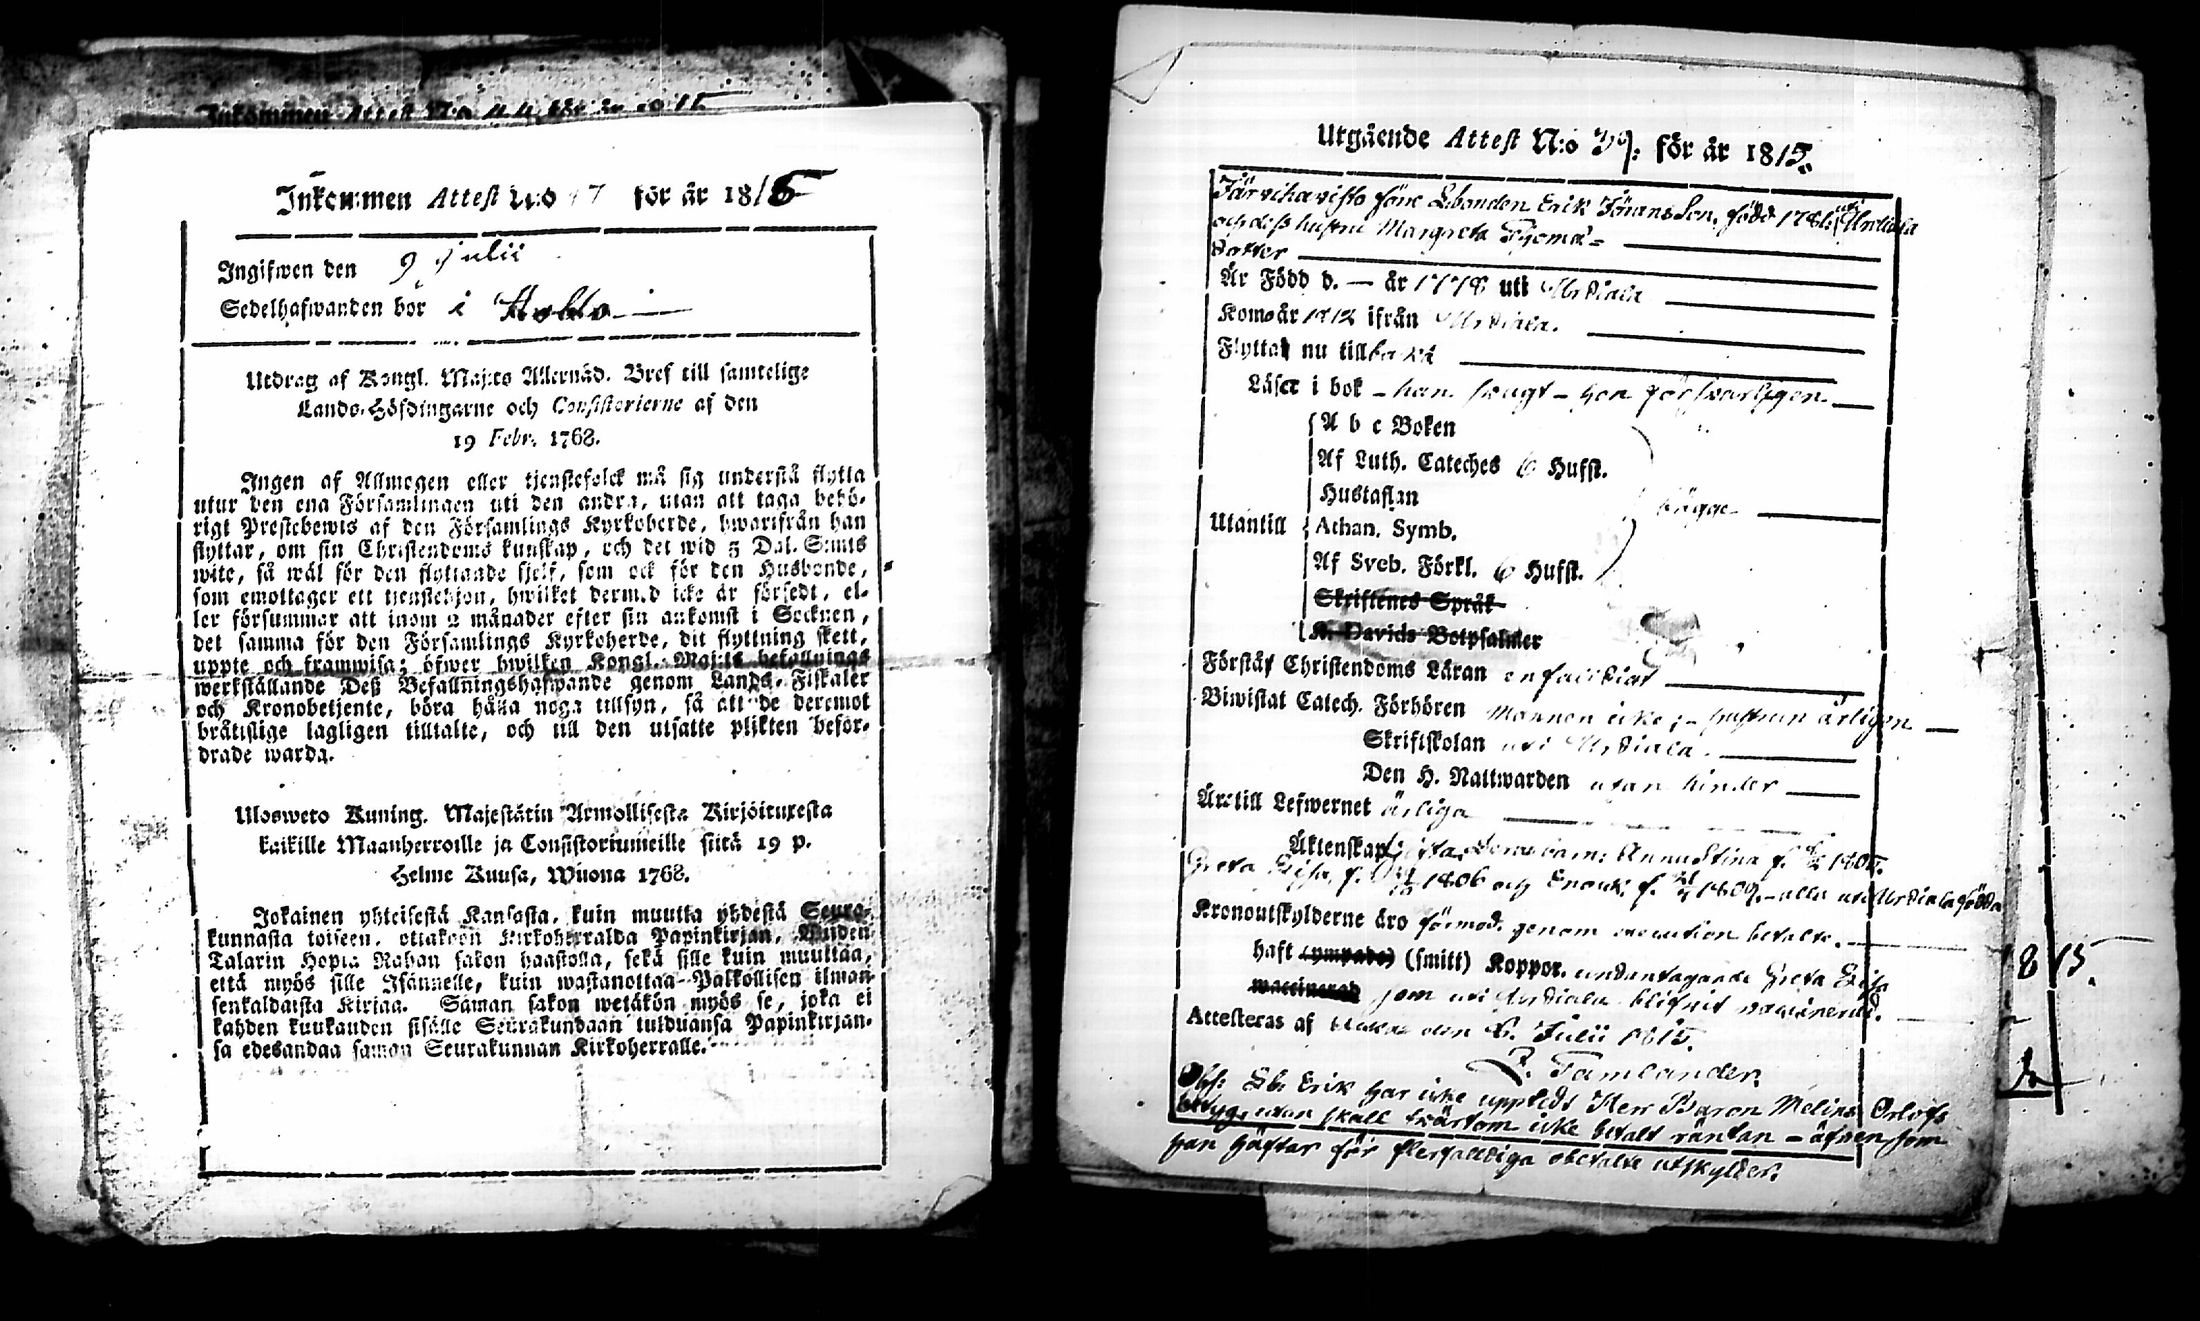 Inkommen Attest N:o för år 1815
Inkommen Attest N:o 47 för år 1815
Ingifwen den 9 Julii
Sedelhafwanden bor i
Utdrag af Kongl. Maj:ts Allernåd. Bref till samtelige
Lands-Höfdingarne och Consistorierne af den
19 Febr. 1768.
Ingen af Allmogen eller tjenstefolck må sig understå flytta
utur den ena Församlingen uti den andra, utan att taga behö-
rigt Prestebewis af den Församlings Kyrkoherde, hwarifrån han
flyttar, om sin Christendoms kunskap, och det wid 5 Dal. S:mts
wite, så wäl för den flyttande sjelf, som ock för den Husbonde,
som emottager ett tienstehjon, hwilket dermed icke är försedt, el-
ler försummar att inom 2 månader efter sin ankomst i Socknen,
det samma för den Församlings Kyrkoherde, dit flyttning skett,
uppte och framwisa; öfwer hwilken Kongl. Maj:ts befallnings
werkställande Deß Befallningshafwande genom Lands-Fiskaler
och Kronobetjente, böra hålla noga tillsyn, så att de deremot
bråtislige lagligen tilltalte, och till den utsatte plikten befor-
drade warda.
Ulosweto Kuning. Majestätin Armollisesta Kirjoituxesta
kaikille Maanherroille ja Consistoriumeille siitä 19 p.
Helme Kuusa, Wuona 1768.
Jokainen yhteisestä Kansasta, kuin muutta yhdestä Seura-
kunnasta toiseen, ottakoon Kirkoherralda Papinkirjan, Wiiden
Talarin Hopia Rahan sakon haastolla, sekä sille kuin muuttaa,
että myös sille Isännelle, kuin wastanottaa Palkollisen ilman
senkaldaista Kirjaa. Saman sakon wetäkön myös se, joka ei
kahden kuukauden sisälle Seurakundaan tulduansa Papinkirjan-
sa edesandaa saman Seurakunnan Kirkoherralle.
Utgående Attest N:o 39: för år 1815.
förre Lbonden Erik Jörans Son, född 1781 uti Urdiala
och dess hustru Margreta Thoma-
Dotter
Är Född d. — år 1778 uti Urdiala
Kom år 1812 ifrån Urdiala.
Flytta nu tillbaka
Läser i bok - han swagt - hon försvarligen
Utantill
A b c Boken
Af Luth. Cateches 6 Hufst.
Hustaflan
Athan. Symb.
Af Sveb. Förkl. 6 Hufst.
bägge
Skriftenes Språk
K. Davids Botpsalmer
Förstår Christendoms Läran enfaldigt
Biwistat Catech. Förhören mannen icke; - hustrun årligen
Skriftskolan uti Urdiala.
Den H. Nattwarden utan hinder
Äro till Lefwernet ärliga
Äktenskap barn: Anna Stina f. 1805.
Greta Lisa, f. 1806 och Enock f. 1809. - alla uti Urdiala födda
Kronoutskylderne äro förmod. genom execution betalte.
haft (ympade) (smitt) Koppor. undantagande Greta Lisa
waccinerad som uti Urdiala blifvit vaccinerad.
Attesteras af den 6. Julii 1815.
J. Tamlander.
Obs: Lb. Erik har icke upptedt Herr Baron Melins Orlofs
betyg, utan skall twärtom icke betalt räntan - äfven som
han häftar för flerfalldiga obetalte utskylder.
1815.